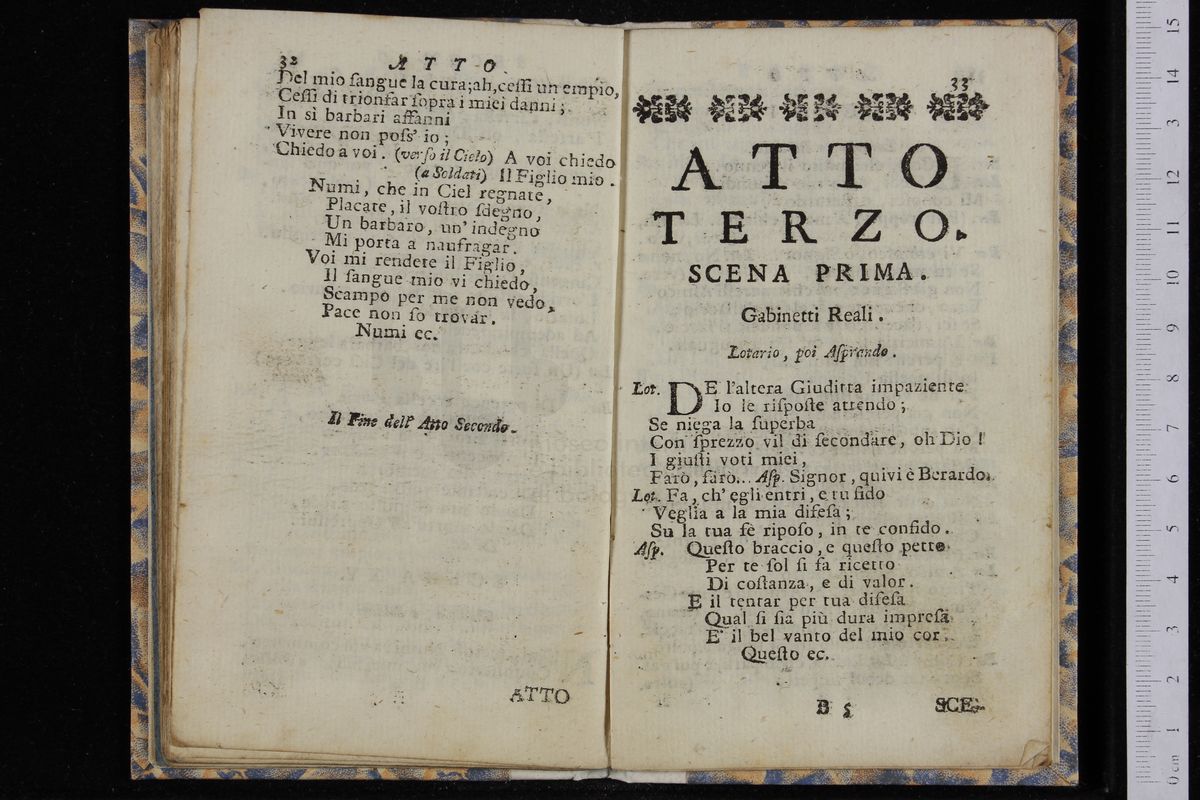 32 ATTO.
Del mio ſangue la cura; ah, ceſſi un empio,
Ceſſi di trionfar ſopra i miei danni;
In sì barbari affanni
Vivere non poſs' io;
Chiedo a voi. (verſo il Cielo) A voi chiedo
(a Soldati) Il Figlio mio.
Numi, che in Ciel regnate,
Placate, il voſtro ſdegno,
Un barbaro, un' indegno
Mi porta a naufragar.
Voi mi rendete il Figlio,
Il ſangue mio vi chiedo,
Scampo per me non vedo,
Pace non ſo trovar.
Numi ec.
Il Fine dell' Atto Secondo.
ATTO
33
ATTO
TERZO.
SCENA PRIMA.
Gabinetti Reali.
Lotario, poi Aſprando.
Lot. DE l'altera Giuditta impaziente
Io le riſpoſte attendo;
Se niega la ſuperba
Con ſprezzo vil di ſecondare, oh Dio!
I giuſti voti miei,
Farò, farò... Aſp. Signor, quivi è Berardo.
Lot. Fa, ch' egli entri, e tu fido
Veglia a la mia difeſa;
Su la tua fè ripoſo, in te confido.
Aſp. Queſto braccio, e queſto petto
Per te ſol ſi fa ricetto
Di coſtanza, e di valor.
E il tentar per tua difeſa
Qual ſi ſia più dura impreſa
E' il bel vanto del mio cor.
Queſto ec.
B 5 SCE-